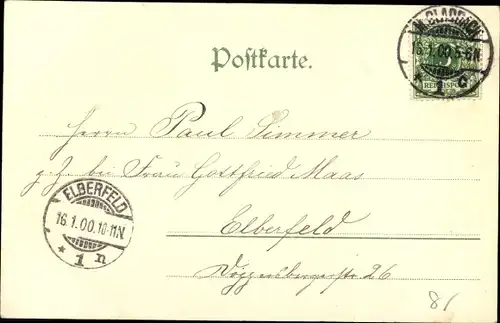 M.GLADBACH
16.1.00.5-6N.
* 1 c
REICHSPOST
Postkarte.
Herrn Paul Simmer
z. Z. bei Frau Gottfried Maas
ELBERFELD
16.1.00.10-11N.
* 1 n
Elberfeld
26
81